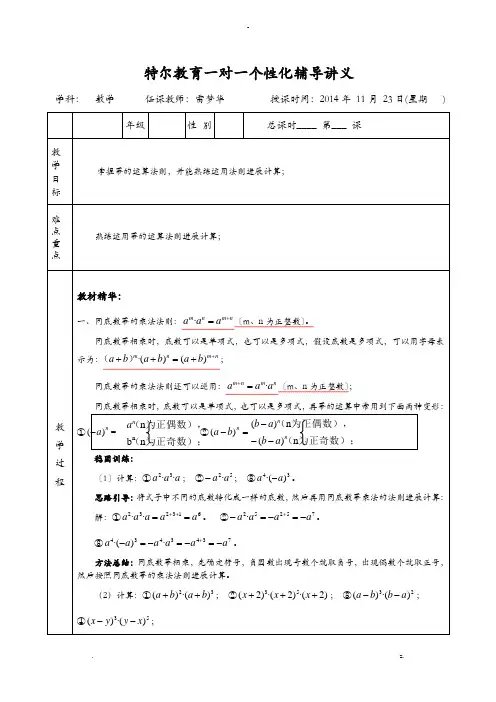 特尔教育一对一个性化辅导讲义
学科： 数学 任课教师：雷梦华 授课时间：2014 年 11 月 23 日(星期 )
年级 性 别 总课时____ 第___ 课
教学目标
掌握幂的运算法则，并能熟练运用法则进展计算；
难点重点
熟练运用幂的运算法则进展计算；
教学过程
教材精华：
一、同底数幂的乘法法则：a^m·a^n = a^{m+n}〔m、n 为正整数〕。
同底数幂相乘时，底数可以是单项式，也可以是多项式，假设底数是多项式，可以用字母表
示为：(a+b)^m·(a+b)^n = (a+b)^{m+n}；
同底数幂的乘法法则还可以逆用：a^{m+n} = a^m·a^n〔m、n 为正整数〕；
同底数幂相乘时，底数可以是单项式，也可以是多项式，再幂的运算中常用到下面两种变形：
a^n(n为正偶数)， (b−a)^n(n为正偶数)，
①(−a)^n = ②(a−b)^n =
b^n(n为正奇数)； −(b−a)^n(n为正奇数)；
稳固训练：
〔1〕计算：①a^2·a^3·a； ②−a^2·a^5； ③a^4·(−a)^3。
思路引导：将式子中不同的底数转化成一样的底数，然后再用同底数幂乘法的法则进展计算：
解：①a^2·a^3·a = a^{2+3+1} = a^6。 ②−a^2·a^5 = −a^{2+5} = −a^7。
③a^4·(−a)^3 = −a^4·a^3 = −a^{4+3} = −a^7。
方法总结：同底数幂相乘，先确定符号，负因数出现奇数个就取负号，出现偶数个就取正号，
然后按照同底数幂的乘法法则进展计算。
（2）计算：①(a+b)^2·(a+b)^3； ②(x+2)^3·(x+2)^5·(x+2)； ③(a−b)^3·(b−a)^2；
④(x−y)^3·(y−x)^5；
. z.